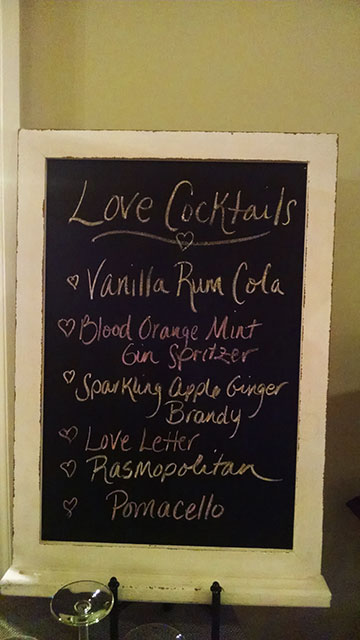 Love Cocktails
Vanilla Rum Cola
Blood Orange Mint
Gin Spritzer
Sparkling Apple Ginger
Brandy
Love Letter
Rasmopolitan
Pomacello